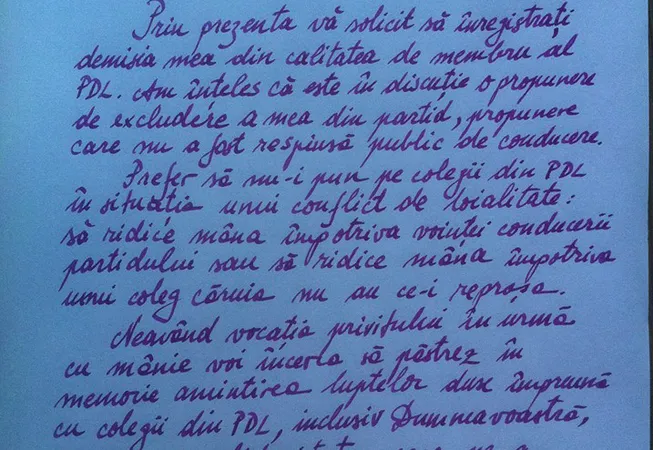 Prin prezenta vă solicit să înregistrați
demisia mea din calitatea de membru al
PDL. Am înțeles că este în discuție o propunere
de excludere a mea din partid, propunere
care nu a fost respinsă public de conducere.
Prefer să nu-i pun pe colegii din PDL
în situația unui conflict de loialitate:
să ridice mâna împotriva voinței conducerii
partidului sau să ridice mâna împotriva
unui coleg căruia nu au ce-i reproșa.
Neavând vocația privitului în urmă
cu mânie voi încerca să păstrez în
memorie amintirea luptelor duse împreună
cu colegii din PDL, inclusiv Dumneavoastră,